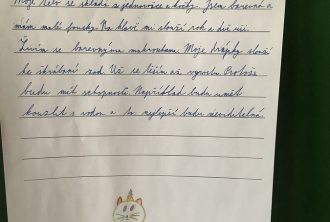 Moje tělo se skládá z jednorožce a kočky. Jsem barevná a
mám malé fousky. Na hlavě mi sluší roh a dvě uši.
Živím se barevnýma makronkama. Moje drápky slouží
ke škrábání rad. Už se těším až vyrostu. Protože
budu mít schopnosti. Například budu umět
kouzlit s rohem a to nejlepší budu neviditelná.